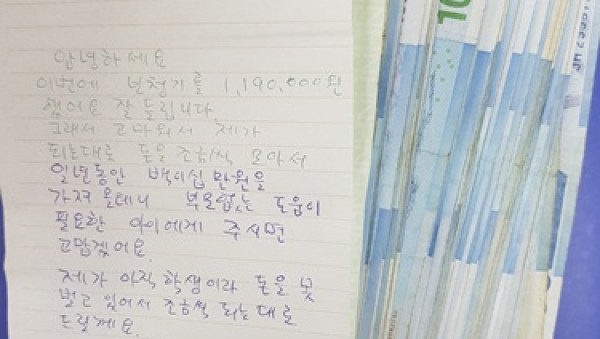 안녕하세요
이번에 보청기를 1,190,000원
했어요 잘 들립니다
그래서 고마워서 제가
되는대로 돈을 조금씩 모아서
일년동안 백이십만원을
가져 올테니 부모없는 도움이
필요한 아이에게 주시면
고맙겠어요.
제가 아직 학생이라 돈을 못
벌고 있어서 조금씩 되는대로
드릴게요.
10